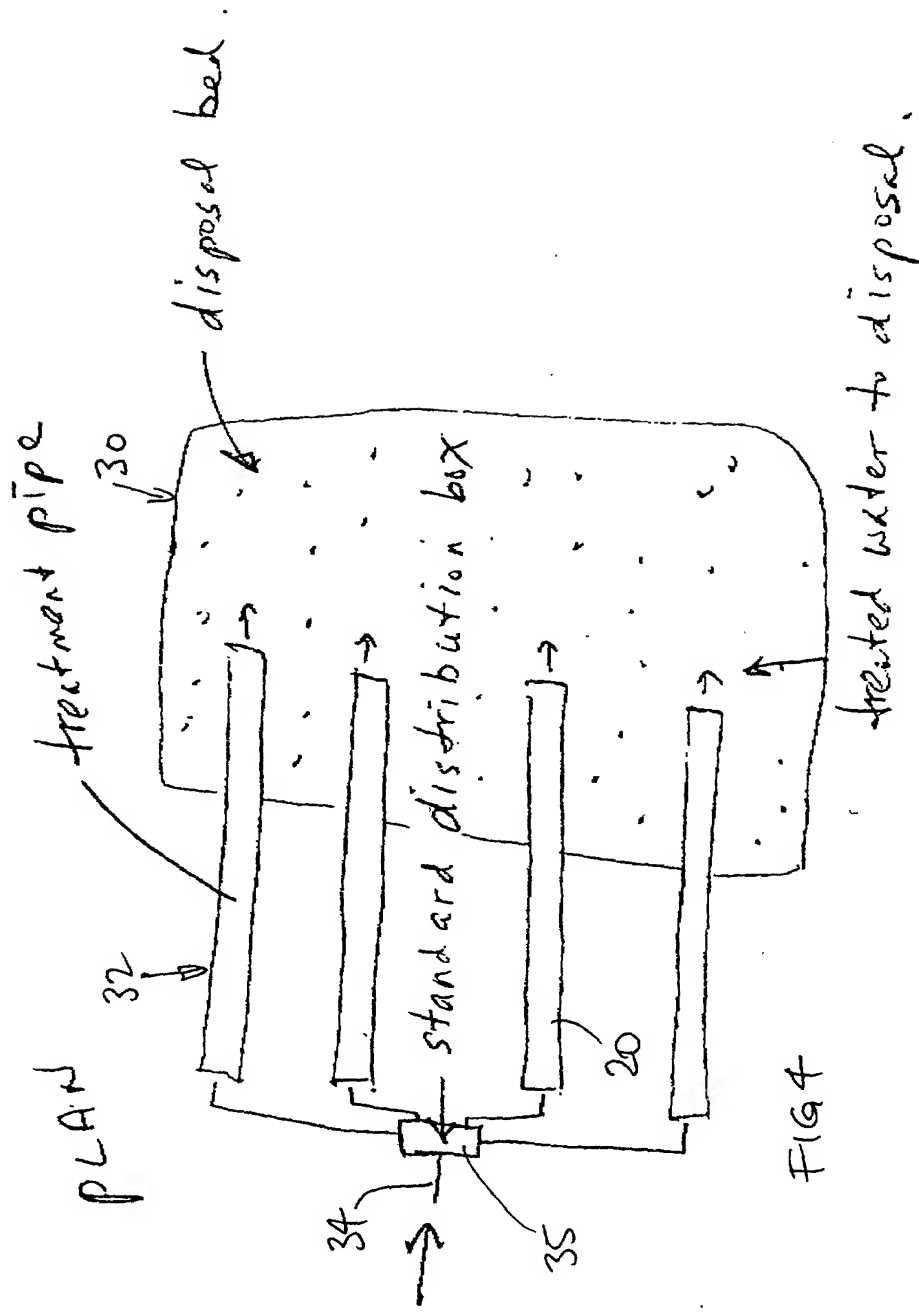 PLAIN
treatment pipe
32
30
disposal bed.
34
standard distribution box
35
20
FIG 4
treated water to disposal.